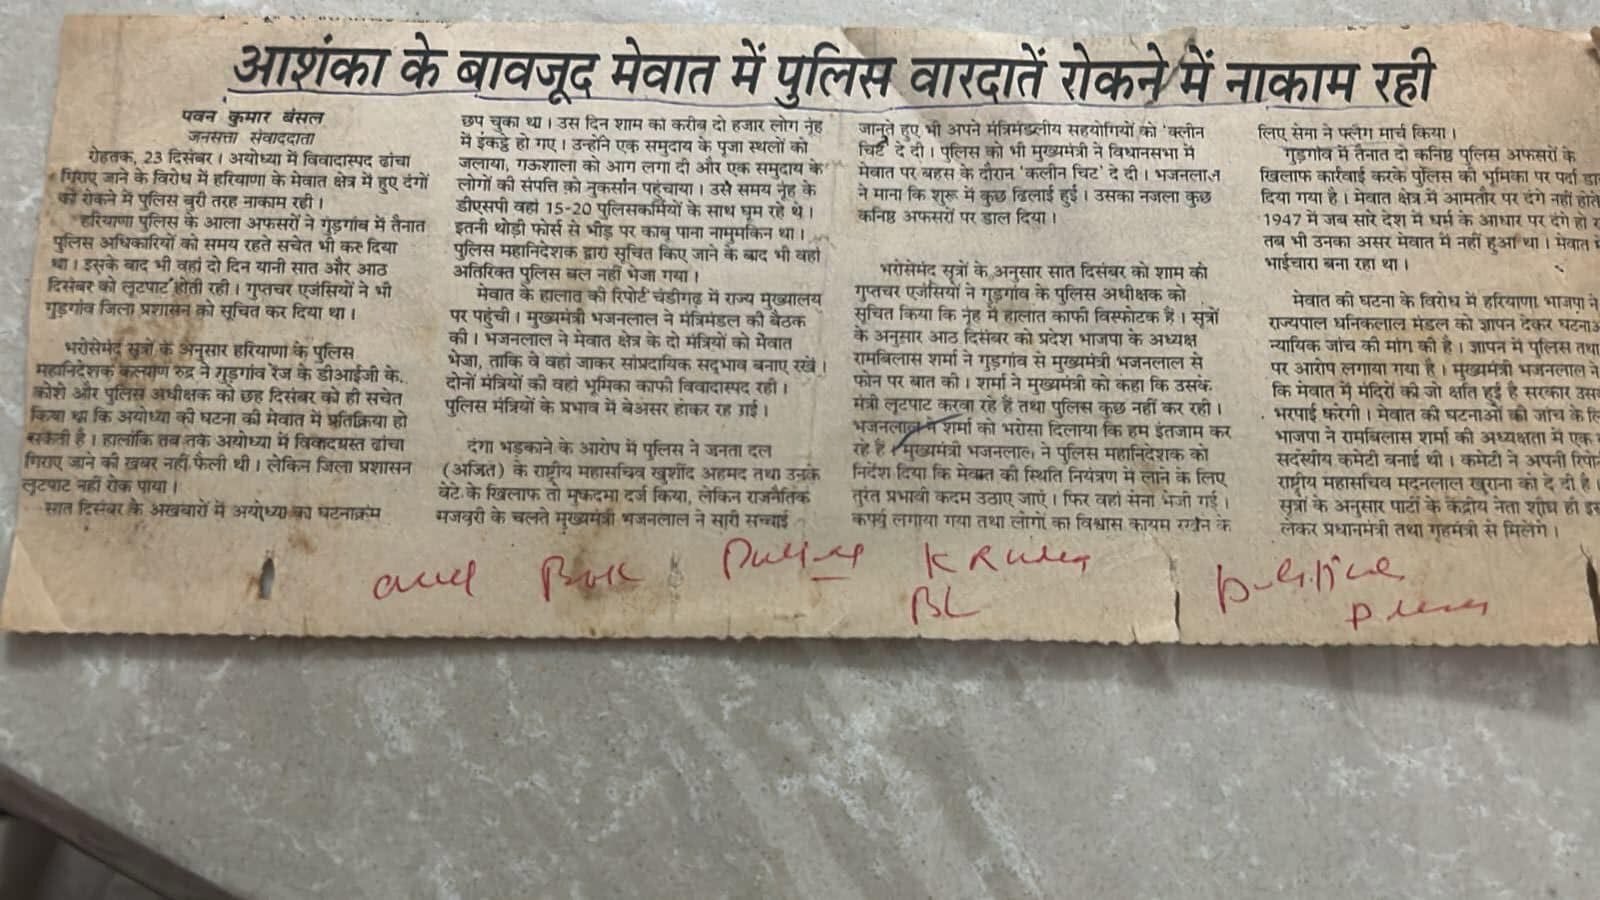 आशंका के बावजूद मेवात में पुलिस वारदातें रोकने में नाकाम रही
पवन कुमार बंसल
जनसत्ता संवाददाता
रोहतक, 23 दिसंबर। अयोध्या में विवादास्पद ढांचा
गिराए जाने के विरोध में हरियाणा के मेवात क्षेत्र में हुए दंगों
को रोकने में पुलिस बुरी तरह नाकाम रही।
हरियाणा पुलिस के आला अफसरों ने गुड़गांव में तैनात
पुलिस अधिकारियों को समय रहते सचेत भी कर दिया
था। इसके बाद भी वहां दो दिन यानी सात और आठ
दिसंबर को लूटपाट होती रही। गुप्तचर एजंसियों ने भी
गुड़गांव जिला प्रशासन को सूचित कर दिया था।
भरोसेमंद सूत्रों के अनुसार हरियाणा के पुलिस
महानिदेशक कल्याण रुद्र ने गुड़गांव रेंज के डीआईजी के.
कोशे और पुलिस अधीक्षक को छह दिसंबर को ही सचेत
किया था कि अयोध्या की घटना की मेवात में प्रतिक्रिया हो
सकती है। हालांकि तब तक अयोध्या में विवादग्रस्त ढांचा
गिराए जाने की खबर नहीं फैली थी। लेकिन जिला प्रशासन
लूटपाट नहीं रोक पाया।
सात दिसंबर के अखबारों में अयोध्या का घटनाक्रम
छप चुका था। उस दिन शाम को करीब दो हजार लोग नूंह
में इकट्ठे हो गए। उन्होंने एक समुदाय के पूजा स्थलों को
जलाया, गऊशाला को आग लगा दी और एक समुदाय के
लोगों की संपत्ति को नुकसान पहुंचाया। उस समय नूंह के
डीएसपी वहां 15-20 पुलिसकर्मियों के साथ घूम रहे थे।
इतनी थोड़ी फोर्स से भीड़ पर काबू पाना नामुमकिन था।
पुलिस महानिदेशक द्वारा सूचित किए जाने के बाद भी वहां
अतिरिक्त पुलिस बल नहीं भेजा गया।
मेवात के हालात की रिपोर्ट चंडीगढ़ में राज्य मुख्यालय
पर पहुंची। मुख्यमंत्री भजनलाल ने मंत्रिमंडल की बैठक
की। भजनलाल ने मेवात क्षेत्र के दो मंत्रियों को मेवात
भेजा, ताकि वे वहां जाकर सांप्रदायिक सद्भाव बनाए रखें।
दोनों मंत्रियों की वहां भूमिका काफी विवादास्पद रही।
पुलिस मंत्रियों के प्रभाव में बेअसर होकर रह गई।
दंगा भड़काने के आरोप में पुलिस ने जनता दल
(अजित) के राष्ट्रीय महासचिव खुर्शीद अहमद तथा उनके
बेटे के खिलाफ तो मुकदमा दर्ज किया, लेकिन राजनैतिक
मजबूरी के चलते मुख्यमंत्री भजनलाल ने सारी सच्चाई
जानते हुए भी अपने मंत्रिमंडलीय सहयोगियों को 'क्लीन
चिट' दे दी। पुलिस को भी मुख्यमंत्री ने विधानसभा में
मेवात पर बहस के दौरान 'क्लीन चिट' दे दी। भजनलाल
ने माना कि शुरू में कुछ ढिलाई हुई। उसका नजला कुछ
कनिष्ठ अफसरों पर डाल दिया।
भरोसेमंद सूत्रों के अनुसार सात दिसंबर को शाम को
गुप्तचर एजंसियों ने गुड़गांव के पुलिस अधीक्षक को
सूचित किया कि नूंह में हालात काफी विस्फोटक हैं। सूत्रों
के अनुसार आठ दिसंबर को प्रदेश भाजपा के अध्यक्ष
रामबिलास शर्मा ने गुड़गांव से मुख्यमंत्री भजनलाल से
फोन पर बात की। शर्मा ने मुख्यमंत्री को कहा कि उसके
मंत्री लूटपाट करवा रहे हैं तथा पुलिस कुछ नहीं कर रही।
भजनलाल ने शर्मा को भरोसा दिलाया कि हम इंतजाम कर
रहे हैं। मुख्यमंत्री भजनलाल ने पुलिस महानिदेशक को
निर्देश दिया कि मेवात की स्थिति नियंत्रण में लाने के लिए
तुरंत प्रभावी कदम उठाए जाएं। फिर वहां सेना भेजी गई।
कर्फ्यू लगाया गया तथा लोगों का विश्वास कायम रखने के
लिए सेना ने फ्लैग मार्च किया।
गुड़गांव में तैनात दो कनिष्ठ पुलिस अफसरों के
खिलाफ कार्रवाई करके पुलिस की भूमिका पर पर्दा डा
दिया गया है। मेवात क्षेत्र में आमतौर पर दंगे नहीं होते
1947 में जब सारे देश में धर्म के आधार पर दंगे हो र
तब भी उनका असर मेवात में नहीं हुआ था। मेवात में
भाईचारा बना रहा था।
मेवात की घटना के विरोध में हरियाणा भाजपा ने
राज्यपाल धनिकलाल मंडल को ज्ञापन देकर घटनाओं
न्यायिक जांच की मांग की है। ज्ञापन में पुलिस तथा
पर आरोप लगाया गया है। मुख्यमंत्री भजनलाल ने
कि मेवात में मंदिरों की जो क्षति हुई है सरकार उस
भरपाई करेगी। मेवात की घटनाओं की जांच के लि
भाजपा ने रामबिलास शर्मा की अध्यक्षता में एक
सदस्यीय कमेटी बनाई थी। कमेटी ने अपनी रिपो
राष्ट्रीय महासचिव मदनलाल खुराना को दे दी है।
सूत्रों के अनुसार पार्टी के केंद्रीय नेता शीघ्र ही इस
लेकर प्रधानमंत्री तथा गृहमंत्री से मिलेंगे।
BL